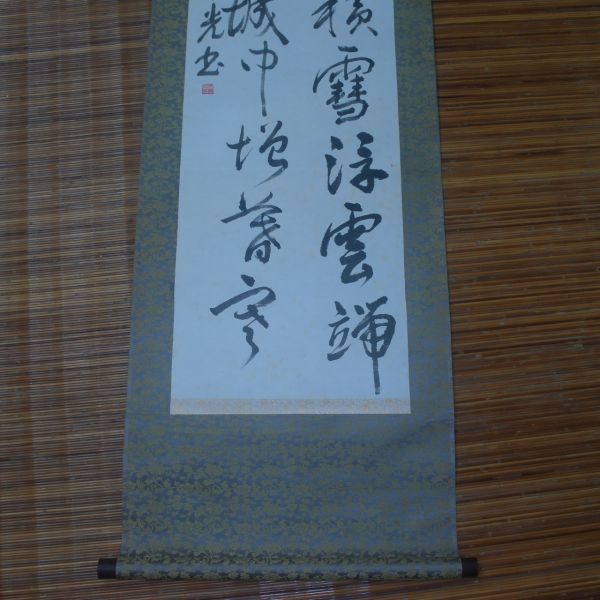 積雪浮雲端
城中増暮寒
光書